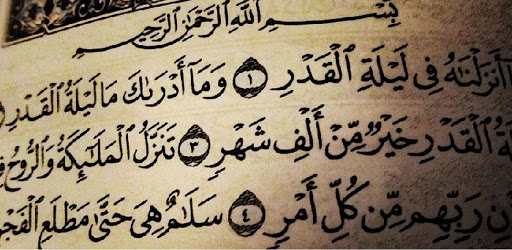 بِسْمِ ٱللَّهِ ٱلرَّحْمَٰنِ ٱلرَّحِيمِ
أَنزَلْنَٰهُ فِي لَيْلَةِ ٱلْقَدْرِ ١ وَمَآ أَدْرَىٰكَ مَا لَيْلَةُ ٱلْقَدْرِ
ٱلْقَدْرِ خَيْرٌ مِّنْ أَلْفِ شَهْرٍ ٣ تَنَزَّلُ ٱلْمَلَٰٓئِكَةُ وَٱلرُّوحُ
رَبِّهِم مِّن كُلِّ أَمْرٍ ٤ سَلَٰمٌ هِيَ حَتَّىٰ مَطْلَعِ ٱلْفَجْرِ